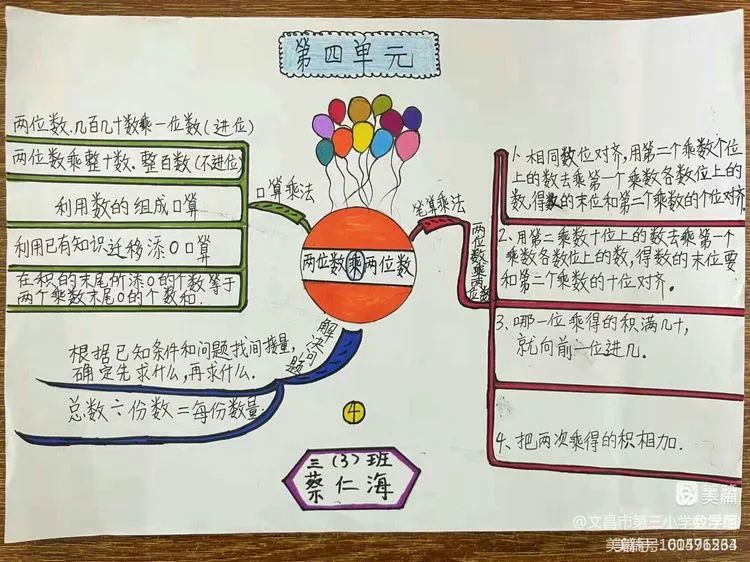 第四单元
两位数、几百几十数乘一位数(进位)
两位数乘整十数、整百数(不进位)
利用数的组成口算
利用已有知识迁移添0口算
在积的末尾所添0的个数等于
两个乘数末尾0的个数和.
口算乘法
两位数乘两位数
笔算乘法
两位数乘两位数
1、相同数位对齐,用第二个乘数个位
上的数去乘第一个乘数各数位上的
数,得数的末位和第二个乘数的个位对齐.
2、用第二乘数十位上的数去乘第一个
乘数各数位上的数,得数的末位要
和第二个乘数的十位对齐。
3、哪一位乘得的积满几十,
就向前一位进几.
4、把两次乘得的积相加.
解决问题
根据已知条件和问题找间接量,
确定先求什么,再求什么.
总数÷份数=每份数量
4
三(3)班
蔡仁海
美篇
@文昌市第三小学数学组